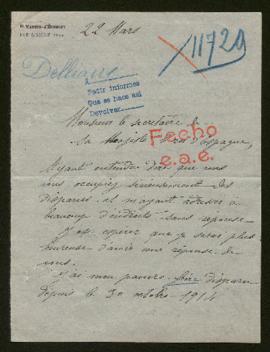 22 Mars
11729
Delliaux
A
Pedir informes
Que se hace así
Devolver
Monsieur le secrétaire de
Sa Majesté d'Espagne
Fecho
e.a.e.
Ayant entendu dire que vous
vous occupiez sérieusement des
disparus et m'ayant adressé à
beaucoup d'endroits sans réponse
J'ose espérer que je serai plus
heureuse d'avoir une réponse de
vous.
J'ai mon pauvre frère disparu
depuis le 30 octobre 1914